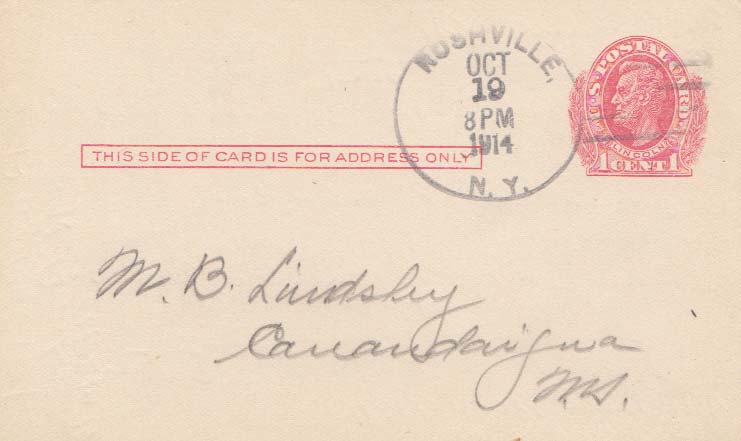 RUSHVILLE,
OCT
19
8 PM
1914
N. Y.
U. S. POSTAL CARD
LINCOLN
1 CENT 1
THIS SIDE OF CARD IS FOR ADDRESS ONLY
M. B. Lindsley
Canandaigua
N.Y.